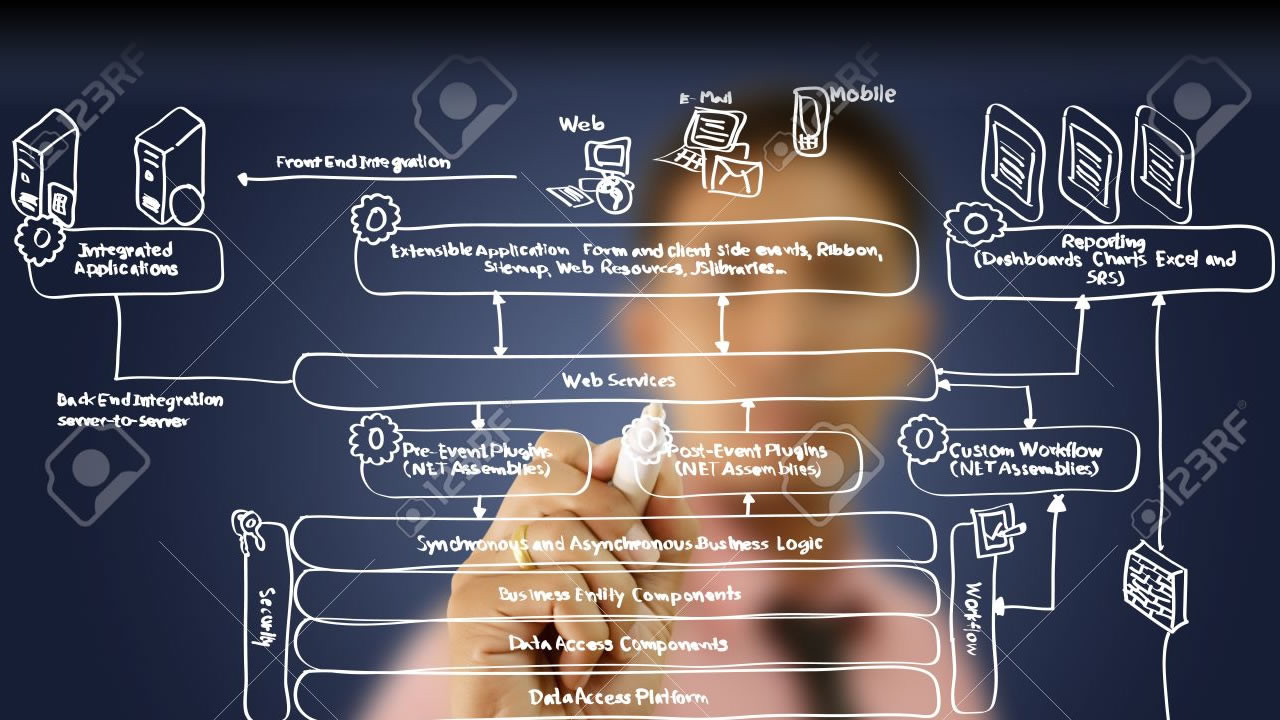 E-Mail
Mobile
Web
Front End Integration
Integrated
Applications
Extensible Application Form and client side events, Ribbon,
Sitemap, Web Resources, JSlibraries...
Reporting
(Dashboards Charts Excel and
SRS)
Web Services
Back End Integration
server-to-server
Pre-Event Plugins
(NET Assemblies)
Post-Event Plugins
(NET Assemblies)
Custom Workflow
(NET Assemblies)
Synchronous and Asynchronous Business Logic
Business Entity Components
Data Access Components
Data Access Platform
Security
Workflow
123RF
123RF
123RF
123RF